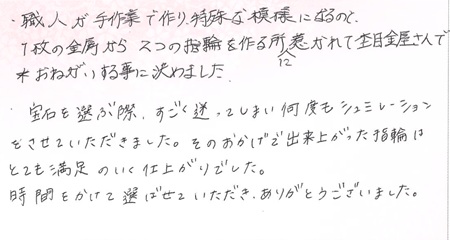 ・職人が手作業で作り、特殊な模様になるのと、
1枚の金属から2つの指輪を作る所に惹かれて杢目金屋さんで
*おねがいする事に決めました。
・宝石を選ぶ際、すごく迷ってしまい何度もシュミレーション
をさせていただきました。そのおかげで出来上がった指輪は
とても満足のいく仕上がりでした。
時間をかけて選ばせていただき、ありがとうございました。